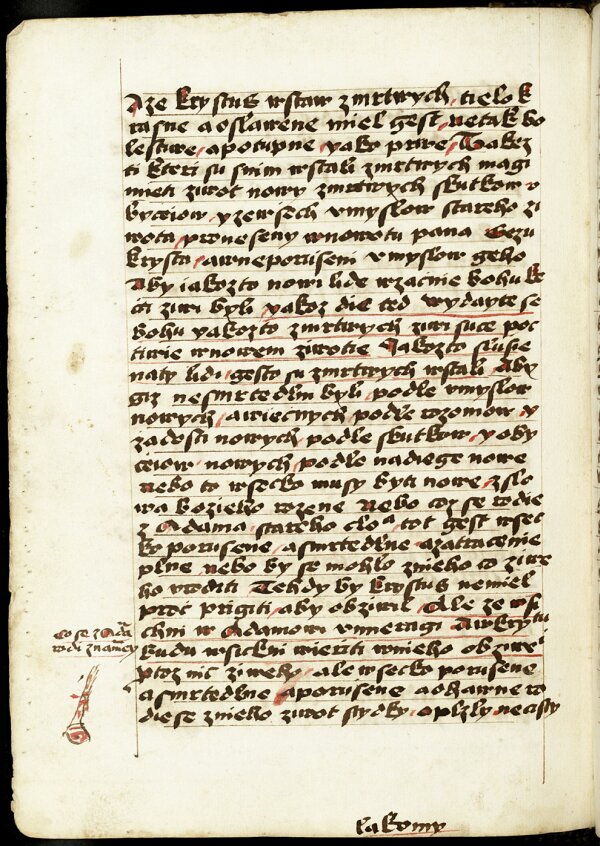 A ze krystus wstaw zmrtwych, tielo k
rasne a oslawene miel gest, ne tak bo
lestiwe, a potupne, yako prwe, Takez
ti kteri su snim wstali zmrtwych magi
mieti zwot nowy zmrtwych skutkow
byceiow, y ze wsech vmyslow stareho zi
wota, proneseny w nowotu pana Gezu
krysta, a w neporuseni vmyslow geho
Aby iakozto nowi lide wzacnie bohu
ziwi byli, yakoz die ted wydayte se
bohu yakozto zmrtwych ziwi suce poc
tiwie w nowem ziwotie Jakozto slusie
na ty lidi, gesto su zmrtwych wstali, Aby
giz nesmrtedlni byli, podle vmyslow
nowych, a wiecnych podle rozomow, y
zadosti nowych, podle skutkow, y oby
ceiow, nowych, podle nadiege nowe
Nebo to wsecko musy byti nowe, z slo
wa bozieho rozene Nebo coz se rodie
z Adama, stareho clo^a, tot gest wsec
ko porusene, a smrtedlne, a zatracenie
plne nebo by se mohlo znieho co ziwe
ho vroditi Tehdy by krystus nemiel
proc prigiti, aby obziwil, Ale ze wsi
chni w Adamowi vmieragi A w krystu
budu wsickni wierici wnieho obziwe^i
ptoz nic ziweho, ale wsecko porusene
a smrtedlne a porusene a ohawne ro
die se znieho ziwot stydky, a plzly, necisty
Co se z Ada
rodi znamey
lakomy